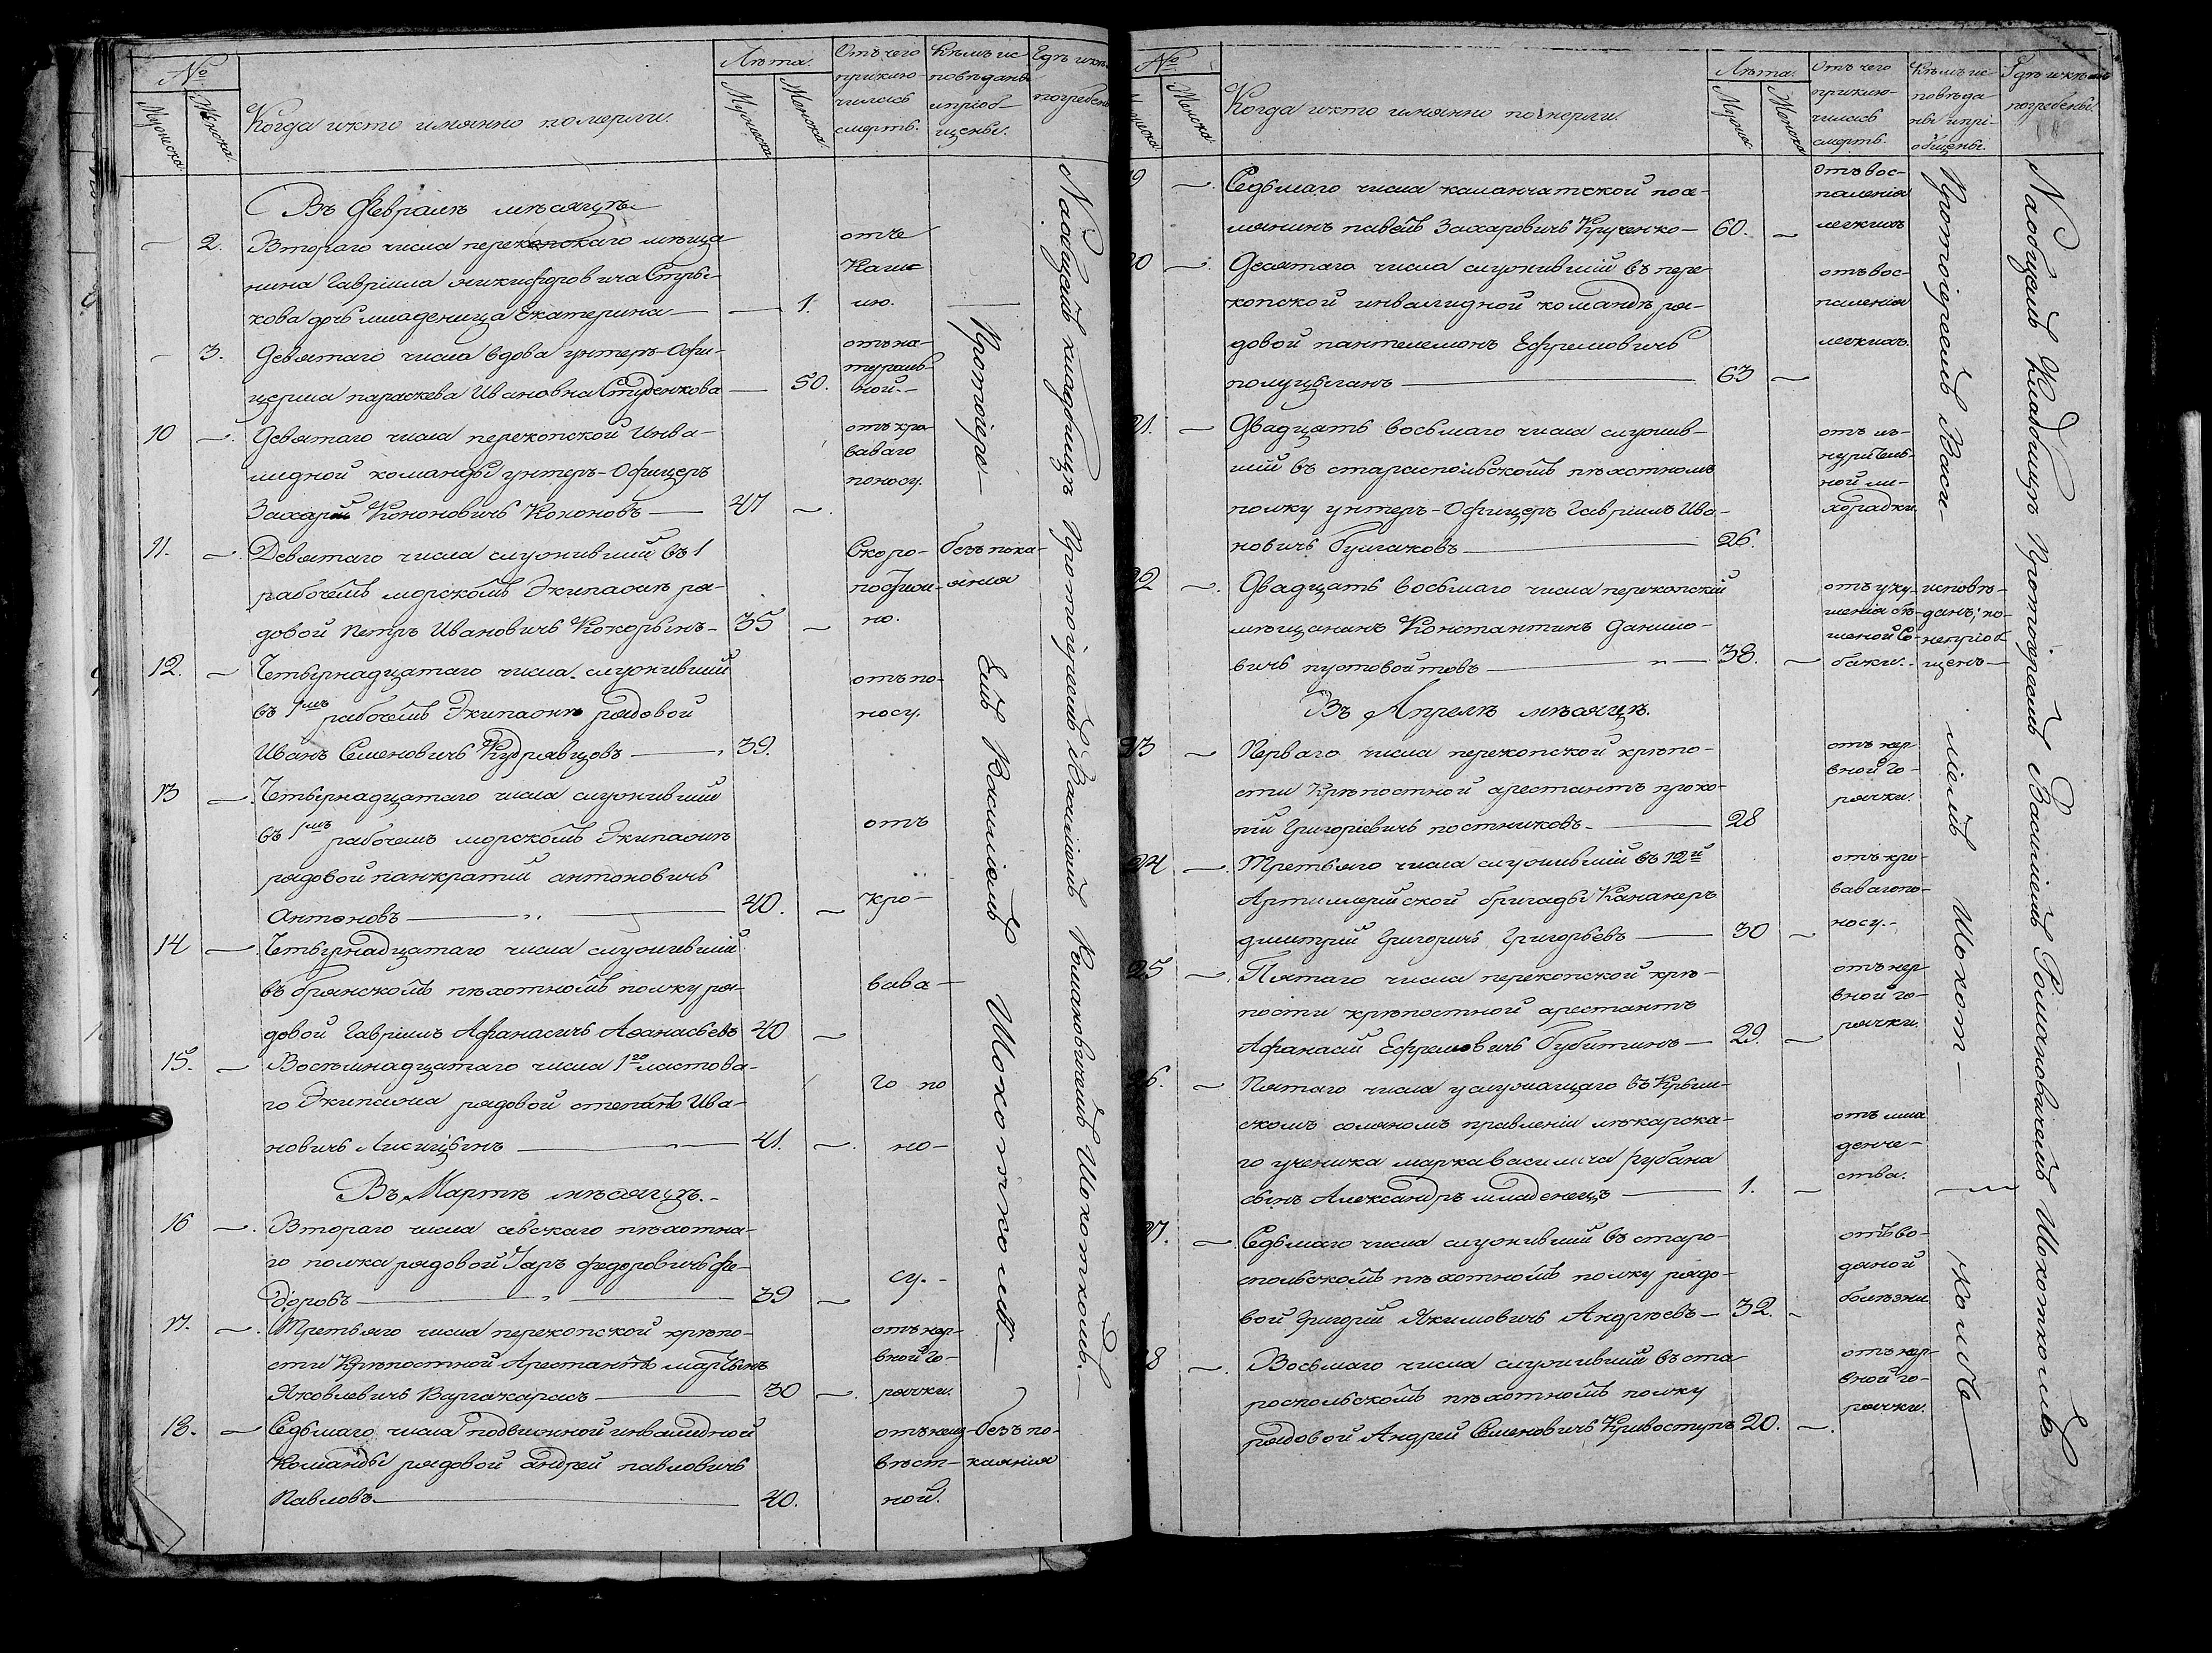 №
Мужеска
Женска
Когда и кто имянно померли.
Лета.
Мужеска
Женска
Отъ чего
приклю-
чилась
смерть.
Кѣмъ ис-
поведаны
и приоб-
щены.
Где и кѣмъ
погребены
Въ Февралѣ месяце
2. Втораго числа перекопскаго меща-
нина Гавріила Никифоровича
кова дочь младеница Екатерина — 1.
отъ
ка
лю.
3. Девятаго числа вдова унтеръ-офи-
церша параскева Ивановна Студенкова — 50.
отъ на-
тураль-
ной.-
10 Девятаго числа перекопской Инва-
лидной команды унтеръ-Офицеръ
Захарій Кононовичь Кононовъ — 47
отъ кро-
ваваго
поносу.
11. Девятаго числа служившій въ 1
рабочемъ морскомъ Экипаже ря-
довой Петръ Ивановичь Кокорынъ - 35
Скоро-
постиж-
но.
безъ пока-
яния
12. Четырнадцатаго числа служившій
въ 1мъ рабочемъ Экипаже рядовой
Иванъ Семеновичь Кудрявцовъ — 39.
отъ по-
носу.
13 Четырнадцатаго числа служившій
въ 1мъ рабочемъ морскомъ Экипаже
рядовой панкратій антоновичь
антоновъ — 40.
14 Четырнадцатаго числа служившій
въ брянскомъ пехотномъ полку ря-
довой Гавріилъ Афанасичь Аѳанасьевъ 40
15. Восемнадцатаго числа 1го ластова-
го Экипажа рядовой степанъ Ива-
новичь Лисицынъ — 41.
Въ Марте месяце.-
16 Втораго числа севскаго пехотна-
го полка рядовой Іаръ федоровичь фе-
доровъ — 39
отъ
кро-
вава-
го по
но-
су.-
17. Третьяго числа перекопской крепо-
сти Крепостной Арестантъ мартынъ
Яковлевичь Варгакарасъ — 30
отъ нер-
вной го-
рячки.
18. Седьмаго числа Подвижной инвалидной
Команды рядовой андрей павловичь
Павловъ — 40.
отъ неиз-
вест-
ной.
безъ по-
каяния
Протоіере-
емъ Василіемъ Шохоткомъ
Наобщемъ кладбище Протоіереемъ Василіемъ Романовичемъ Шохоткомъ.
№
Мужеска
Женска
Когда и кто имянно померли.
Лета.
Мужска
Женска
Отъ чего
приклю-
чилась
смерть.
Кѣмъ ис-
поведа-
ны и прі-
общены.
Где и кѣмъ
погребены.
19 Седьмаго числа каланчатской посе-
лянинъ павелъ Захаровичь Крученко - 60.
Отъ вос-
паления
легкихъ
20 Десятаго числа служившій въ пере-
копской инвалидной команде ря-
довой пантелемонъ Ефремовичь
полуцыганъ — 63
отъ вос-
паления
легкихъ.
21. Двадцать восьмаго числа служив-
шій въ старопольскомъ пехотномъ
полку унтеръ-Офицеръ Гавріилъ Ива-
новичь булгаковъ — 26.
отъ из-
нурітель-
ной ли-
хорадки.
22 Двадцать восьмаго числа перекопскій
мещанинъ Константинъ данило-
вичь пустовойтовъ — 38.
отъ уку-
шения бе-
шеной Со-
баки.-
исповѣ-
данъ, но-
неприоб-
щенъ —
Въ Апреле месяце.
23 Перваго числа перекопской крепо-
сти Крепостной арестантъ проко-
пій Григоріевичь постниковъ. — 28
отъ нер-
вной го-
рячки.
24 Третьяго числа служившій въ 12й
Артиллерійской бригады Кананеръ
дмитрий Григоричь Григорьевъ — 30
отъ кро-
ваваго по-
носу.-
25 Пятаго числа перекопской кре-
пости крепостной арестантъ
Афанасій Ефремовичь Губитинъ — 29.
отъ нер
вной го-
рячки.
26. Пятаго числа услужащаго въ Крым-
скомъ соляномъ правленіи лекарска-
го ученика марка василича рубана
сынъ Александръ младенецъ — 1.
отъ мла
денче-
ства.
27. Седьмаго числа служившій въ старо-
спольскомъ пехотномъ полку рядо-
вой Григорій Якимовичь Андреевъ — 32.
отъ во-
дяной
болезни.
28 Восьмаго числа служившій въ ста
роспольскомъ пехотномъ полку
рядовой Андрей Семеновичь Кривоступъ 20.
отъ нер-
вной го-
рячки.
Протоіереемъ Васи-
ліемъ Шохот-
комъ
Наобщемъ Кладбище Протоіереемъ Василіемъ Романовичемъ Шохоткомъ